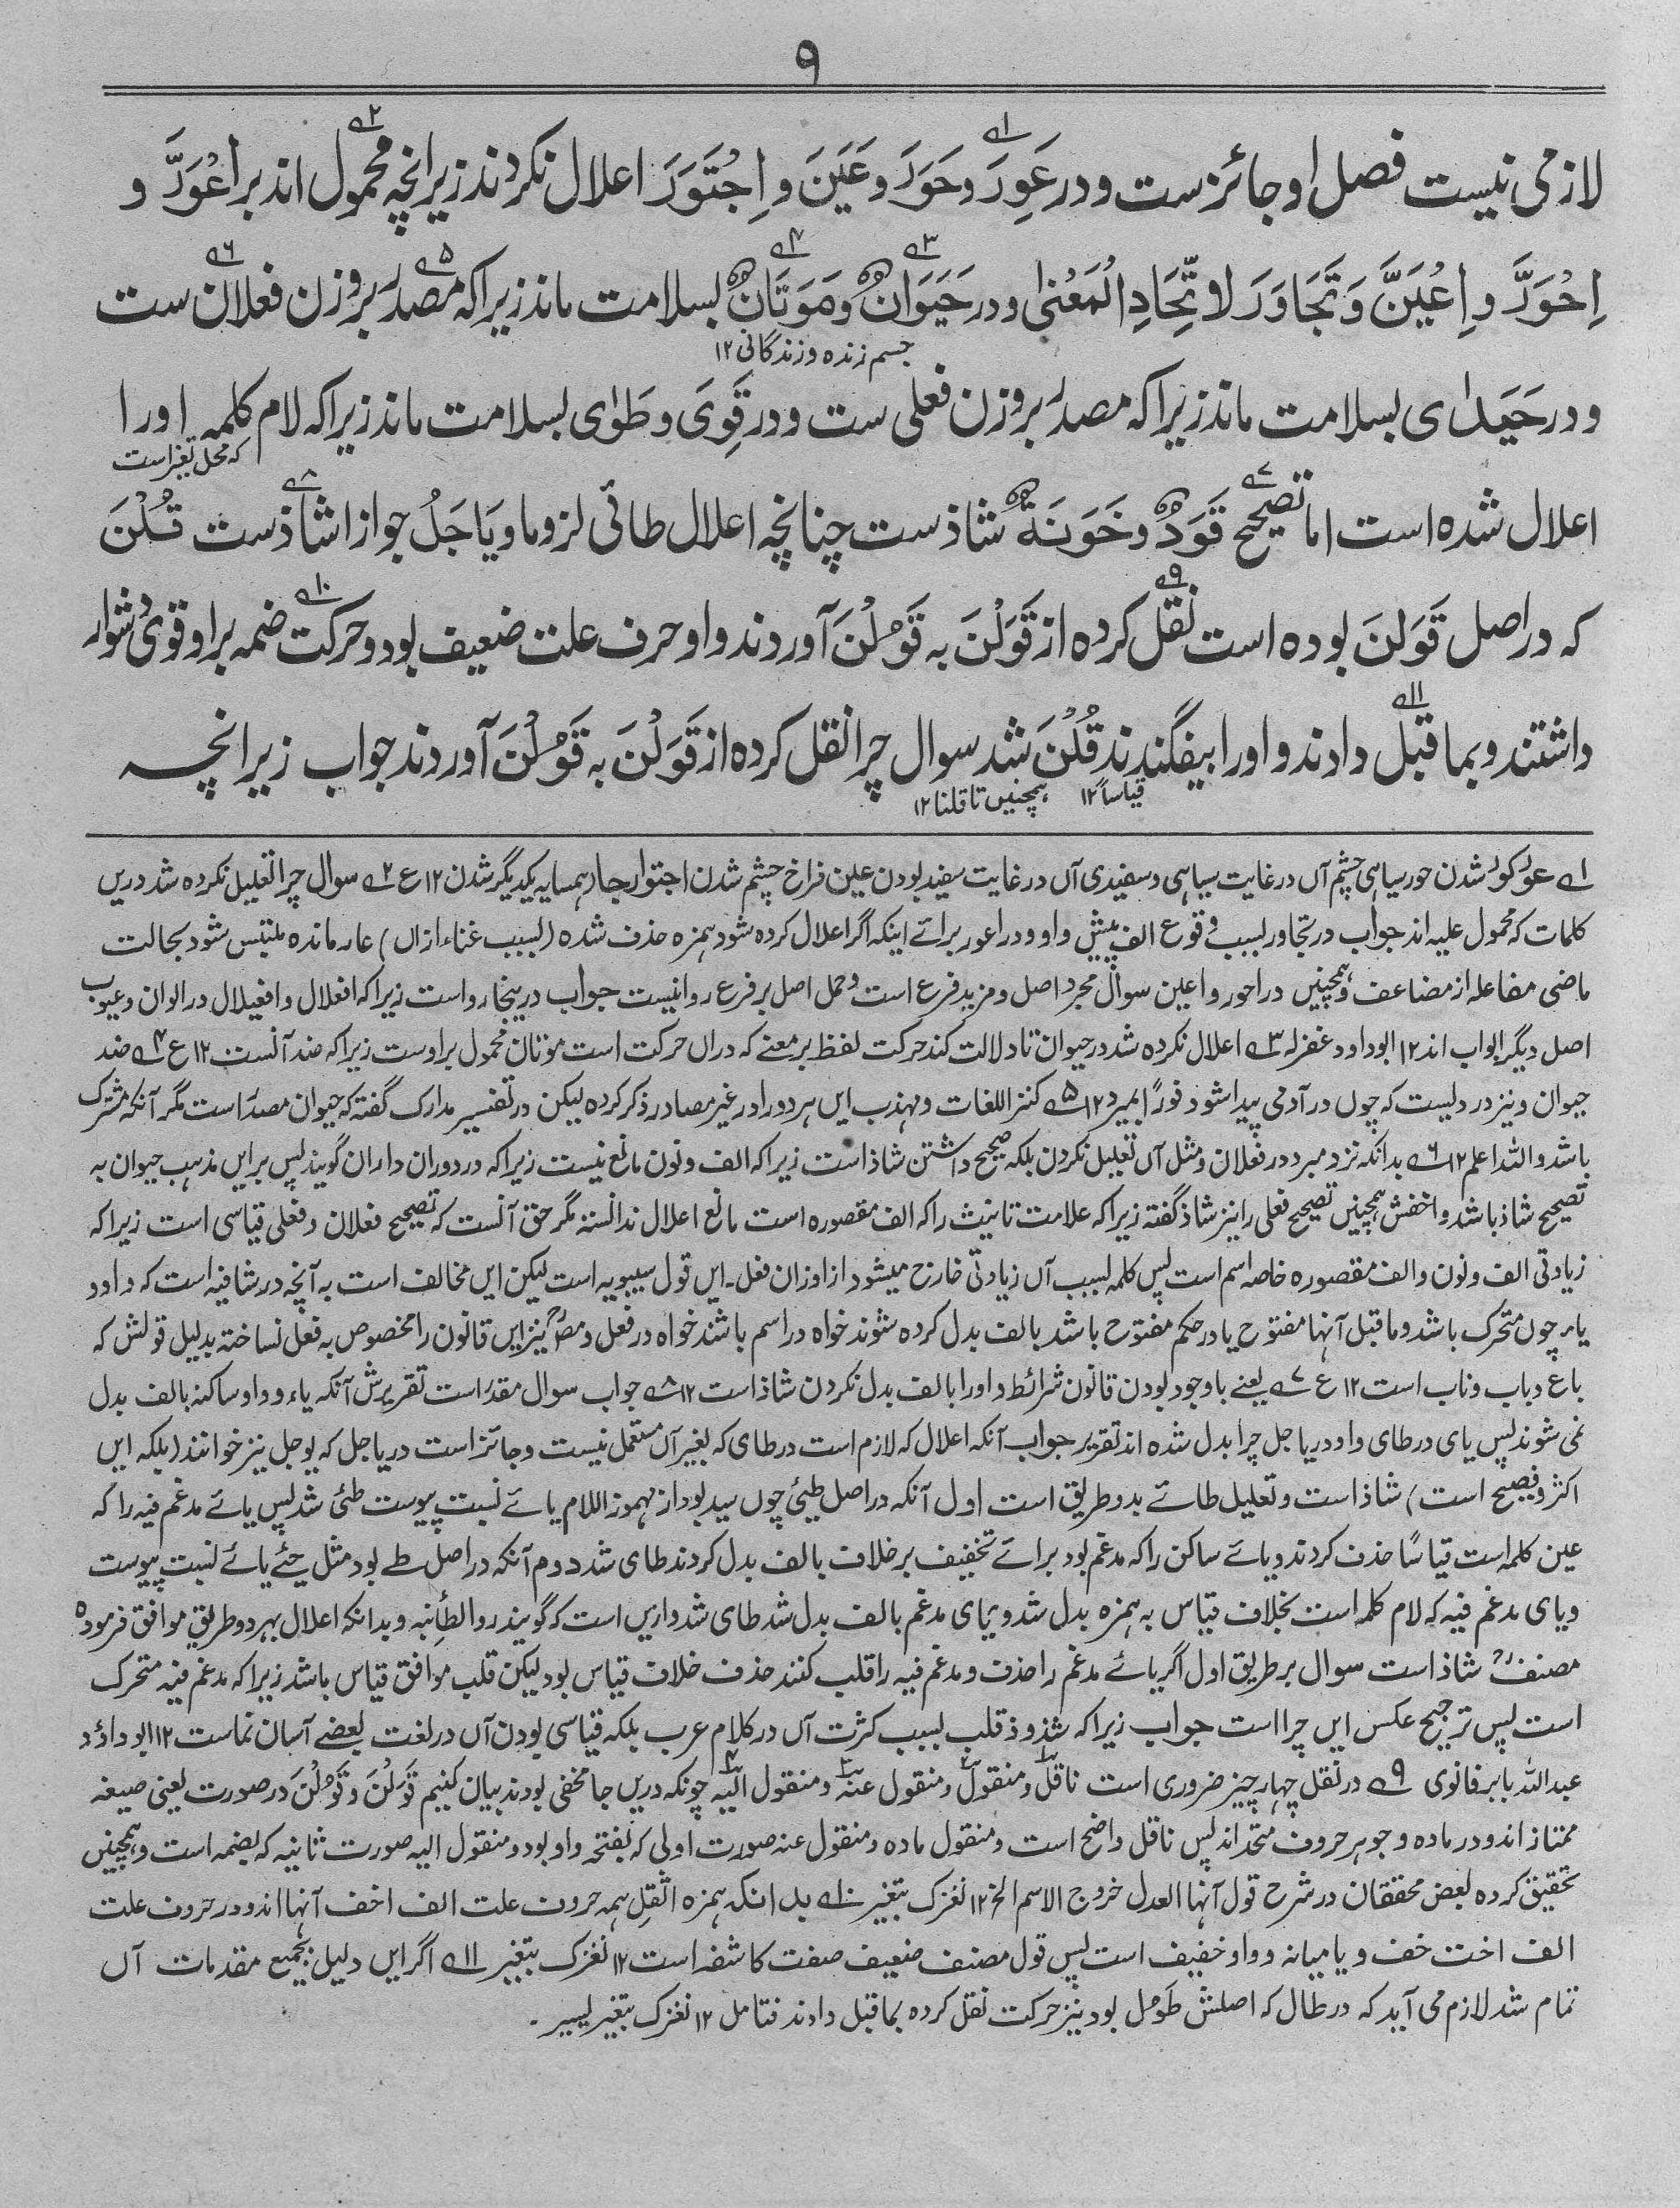 ۹
لازمی نیست فصل او جائز ست و در عَوِرَ و حَوِرَ و عَیِنَ و اِجْتَوَرَ اعلال نکردند زیرانچہ محمول اند بر اعْوَرَّ و
اِحْوَرَّ و اِعْیَنَّ وَ تَجَاوَرَ لِاتِّحَادِ الْمَعْنٰی و در حَیَوَانٌ وَ مَوَتَانٌ بسلامت ماند زیرا کہ مصدر بر وزن فعلان ست
جسم زندہ و زندگانی ۱۲
و در حَیَدٰی بسلامت ماند زیرا کہ مصدر بر وزن فعلی ست و در قَوِیَ و طَوٰی بسلامت ماند زیرا کہ لام کلمہ او را
کہ محل تغیر است
اعلال شدہ است اما تصحیح قَوَدٌ و خَوَنَةٌ شاذ ست چنانچہ اعلال طائی لزوما و یَاجَلُ جوازا شاذ ست قُلْنَ
کہ در اصل قَوَلْنَ بودہ است نقل کردہ از قَوَلْنَ بہ قَوُلْنَ آوردند واو حرف علت ضعیف بود و حرکت ضمہ بر او قوی دشوار
داشتند و بما قبل دادند و او را بیفگندند قُلْنَ شد سوال چرا نقل کردہ از قَوَلْنَ بہ قَوُلْنَ آوردند جواب زیرانچہ
قیاساً ۱۲ ہمچنیں تا قلنا ۱۲
۱ عوَر کور شدن حور سیاہی چشم آں در غایت سیاہی و سفیدی آں در غایت سفید بودن عین فراخ چشم شدن اجتوار جار ہمسایہ یکدیگر شدن ۱۲ ع ۲ سوال چرا تعلیل نکردہ شد دریں
کلمات کہ محمول علیہ اند جواب در تجاور بسبب وقوع الف پیش واو و در اعور برائے اینکہ اگر اعلال کردہ شود ہمزہ حذف شدہ (بسبب غناء ازاں) عار ماندہ ملتبس شود بحالت
ماضی مفاعلہ از مضاعف و ہمچنیں در احور و اعین سوال مجرد اصل و مزید فرع است و حمل اصل بر فرع روا نیست جواب در ینجا روا است زیرا کہ افعلال و افعیلال در الوان و عیوب
اصل دیگر ابواب اند ۱۲ ابو داود غفرلہ ۳ اعلال نکردہ شد در حیوان تا دلالت کند حرکت لفظ بر معنے کہ دراں حرکت است موتان محمول بر اوست زیرا کہ ضد آنست ۱۲ ع ۴ ضد
حیوان و نیز در دلیست کہ چوں در آدمی پیدا شود فوراً بمیرد ۱۲ ۵ کنز اللغات و مہذب ایں ہر دو را در غیر مصادر ذکر کردہ لیکن در تفسیر مدارک گفتہ کہ حیوان مصدر است مگر آنکہ مشترک
باشد واللہ اعلم ۱۲ ۶ بدانکہ نزد مبرد در فعلان و مثل آں تعلیل نکردن بلکہ صحیح داشتن شاذ است زیرا کہ الف و نون مانع نیست زیرا کہ در دوران داران گویند پس بر ایں مذہب حیوان بہ
تصحیح شاذ باشد و اخفش ہمچنیں تصحیح فعلی را نیز شاذ گفتہ زیرا کہ علامت تانیث را کہ الف مقصورہ است مانع اعلال ندانستہ مگر حق آنست کہ تصحیح فعلان و فعلی قیاسی است زیرا کہ
زیادتی الف و نون و الف مقصورہ خاصہ اسم است پس کلمہ بسبب آں زیادتی خارج میشود از اوزان فعل۔ ایں قول سیبویہ است لیکن ایں مخالف است بہ آنچہ در شافیہ است کہ واو و
یاء چوں متحرک باشد و ما قبل آنہا مفتوح یا در حکم مفتوح باشد بالف بدل کردہ شوند خواہ در اسم باشند خواہ در فعل و مصؒ نیز ایں قانون را مخصوص بہ فعل نساختہ بدلیل قولش کہ
باع و باب و ناب است ۱۲ ع ۷ یعنے باوجود بودن قانون شرائط واو را بالف بدل نکردن شاذ است ۱۲ ۸ جواب سوال مقدر است تقریرش آنکہ یاء و واو ساکنہ بالف بدل
نمی شوند پس یای در طای واو در یاجل چرا بدل شدہ اند تقریر جواب آنکہ اعلال کہ لازم است در طای کہ بغیر آں مستعمل نیست و جائز است در یاجل کہ یوجل نیز خوانند (بلکہ ایں
اکثر و فصیح است) شاذ است و تعلیل طائے بدو طریق است اول آنکہ در اصل طیئ چوں سید بود از مہموز اللام یائے نسبت پیوست طیئی شد پس یائے مدغم فیہ را کہ
عین کلمہ است قیاسًا حذف کردند و یائے ساکن را کہ مدغم بود برائے تخفیف بر خلاف بالف بدل کردند طای شد دوم آنکہ در اصل طے بود مثل حئے یائے نسبت پیوست
و یای مدغم فیہ کہ لام کلمہ است بخلاف قیاس بہ ہمزہ بدل شد و یای مدغم بالف بدل شد طای شد و ازیں است کہ گویند روا لطأنبہ و بدانکہ اعلال بہر دو طریق موافق فرمودہ
مصنفؒ شاذ است سوال بر طریق اول اگر یائے مدغم را حذف و مدغم فیہ را قلب کنند حذف خلاف قیاس بود لیکن قلب موافق قیاس باشد زیرا کہ مدغم فیہ متحرک
است پس ترجیح عکس ایں چرا است جواب زیرا کہ شذوذ قلب بسبب کثرت آں در کلام عرب بلکہ قیاسی بودن آں در لغت بعضے آسان نماست ۱۲ ابو داؤد
عبد اللہ بابر فانوی ۹ در نقل چہار چیز ضروری است ناقل و منقول و منقول عنہ و منقول الیہ چونکہ دریں جا مخفی بودند بیان کنیم قَوَلْنَ وَ قَوُلْنَ در صورت یعنی صیغہ
ممتاز اند و در مادہ و جوہر حروف متحد اند پس ناقل واضح است و منقول مادہ و منقول عنہ صورت اولی کہ بفتحہ واو بود و منقول الیہ صورت ثانیہ کہ بضمہ است و ہمچنیں
تحقیق کردہ بعض محققان در شرح قول آنہا العدل خروج الاسم الخ ۱۲ نغزک بتغیر ۱۰ بدانکہ ہمزہ اثقل ہمہ حروف علت الف اخف آنہا اند و در حروف علت
الف اخت خف و یا میانہ و واو خفیف است پس قول مصنف ضعیف صفت کاشفہ است ۱۲ نغزک بتغیر ۱۱ اگر ایں دلیل بجمیع مقدمات آں
تمام شد لازم می آید کہ در طال کہ اصلش طَوُل بود نیز حرکت نقل کردہ بما قبل دادند فتامل ۱۲ نغزک بتغیر یسیر۔